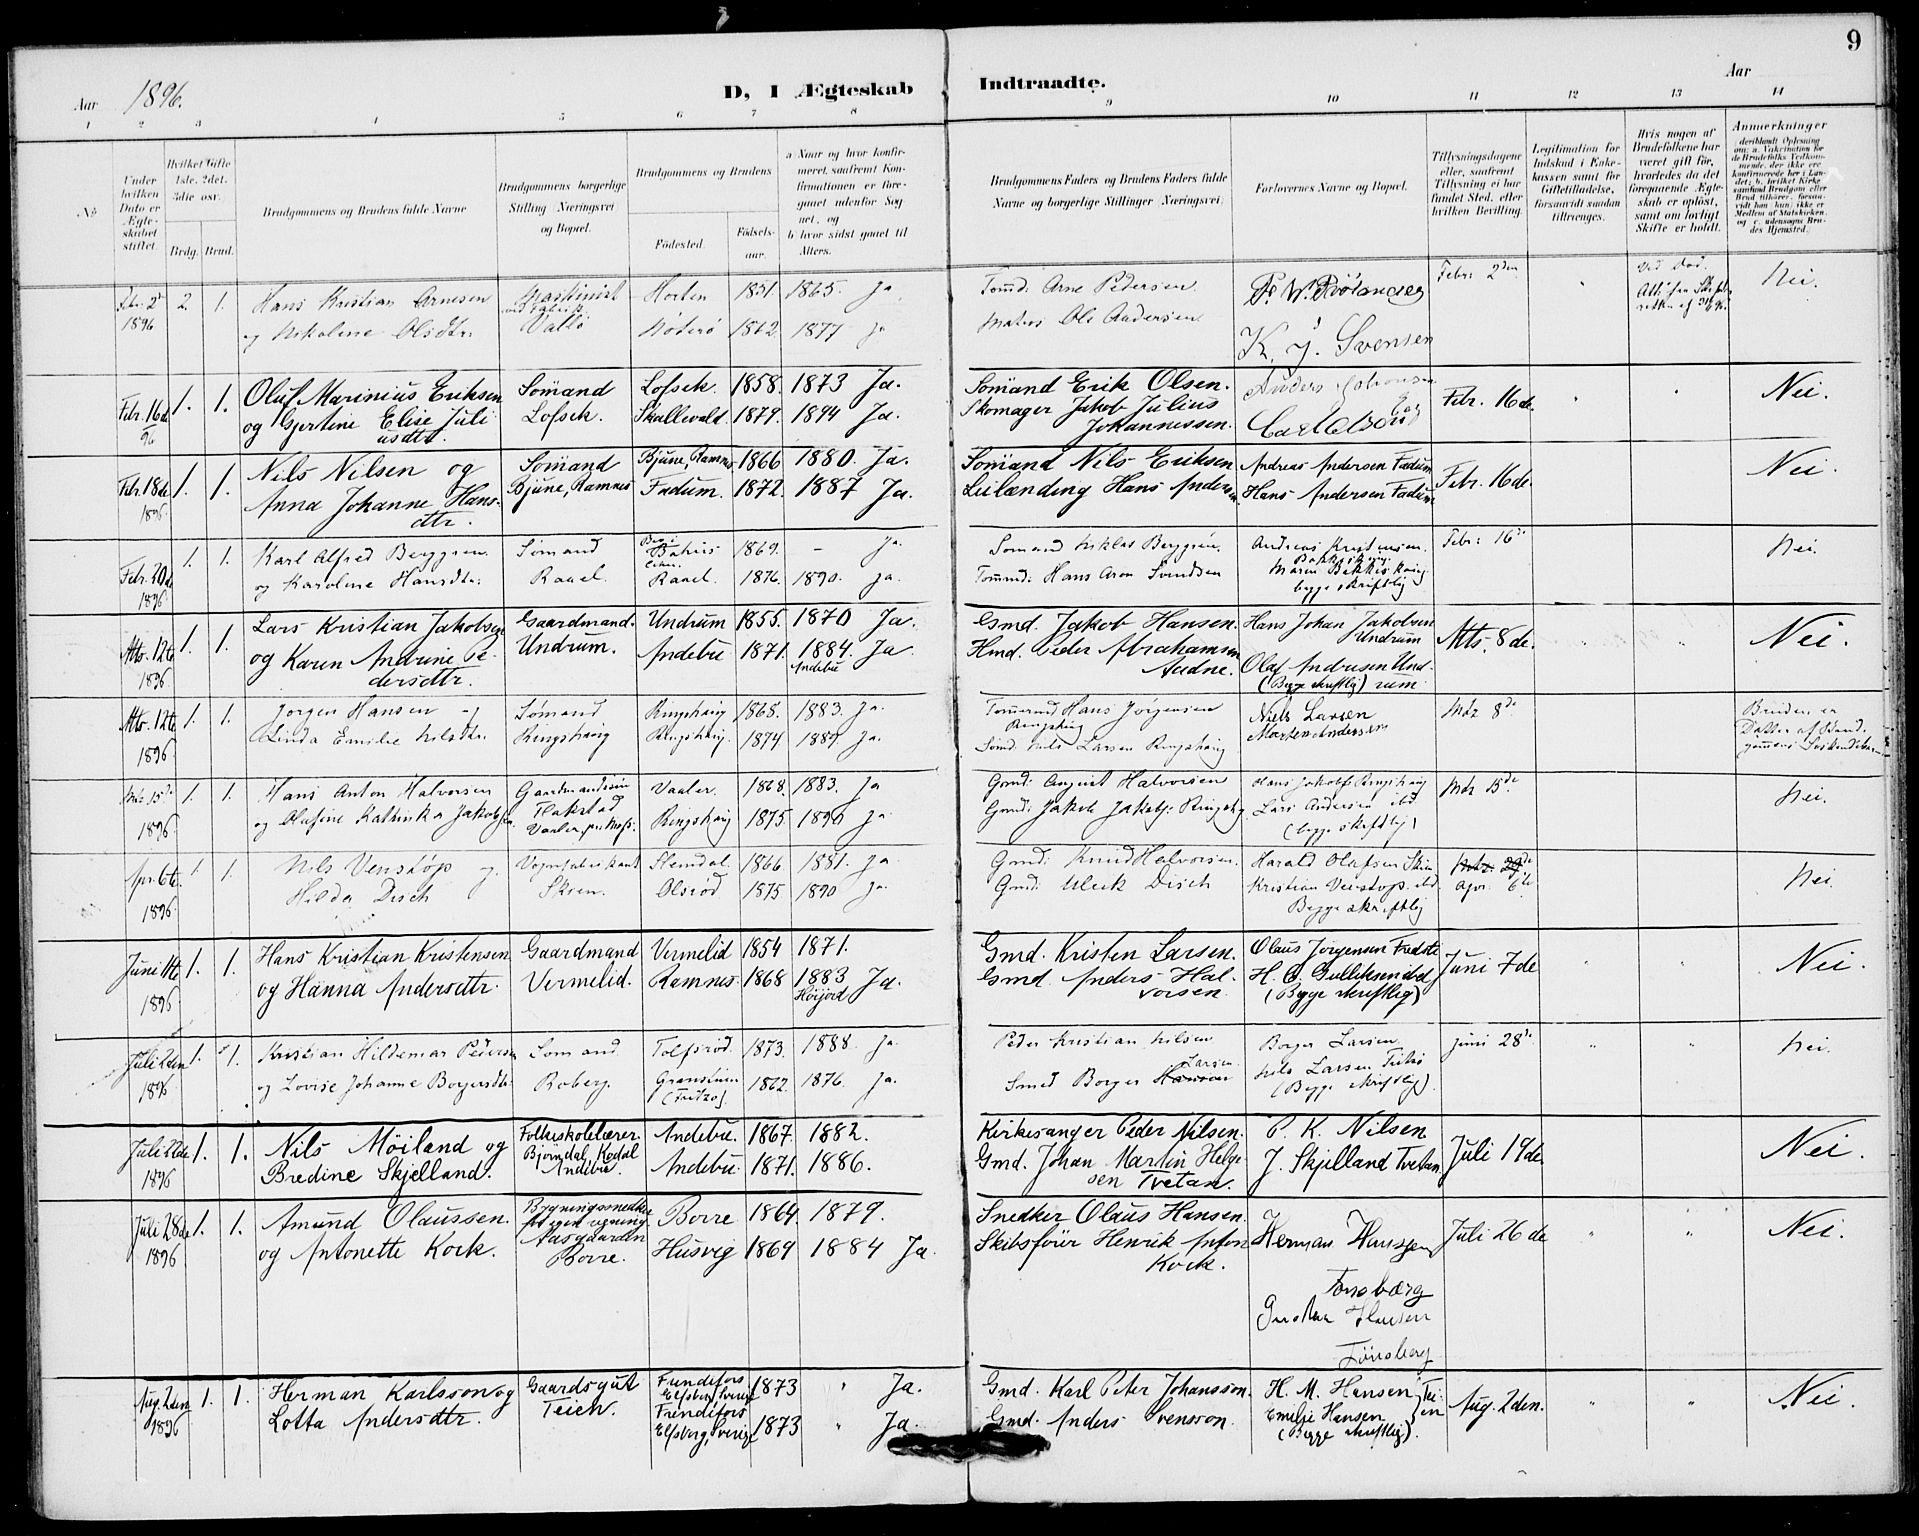 9
Aar 1896.
D, I Ægteskab Indtraadte.
Aar
1 2 3 4 5 6 7 8 9 10 11 12 13 14
No
Under hvilken Dato er Ægteskabet stiftet.
Hvilket Gifte 1ste, 2det, 3die osv.
Brdg. Brud.
Brudgommens og Brudens fulde Navne
Brudgommens borgerlige Stilling Næringsvei og Bopæl.
Brudgommens og Brudens
Fødested.
Fødselsaar.
a Naar og hvor konfirmeret, saafremt Konfirmationen er foregaaet udenfor Sognet, og
b hvor sidst gaaet til Alters.
Brudgommens Faders og Brudens Faders fulde Navne og borgerlige Stillinger Næringsvei.
Forlovernes Navne og Bopæl.
Tillysningsdagene eller, saafremt Tillysning ei har fundet Sted, efter hvilken Bevilling.
Legitimation for Indskud i Enkekassen samt for Giftetilladelse, forsaavidt saadan tiltrænges.
Hvis nogen af Brudefolkene har været gift før, hvorledes da det foregaaende Ægteskab er opløst, samt om lovligt Skifte er holdt.
Anmærkninger
Febr. 2d 2. 1. Hans Kristian Arnesen Maskinist Horten 1851. 1865. Ja Tømd. Arne Pedersen Febr. 2den Ved Død. Nei.
1896 og Nikoline Olsdtr. Vallø Nøterø 1862. 1877 Ja Matros Ole Andersen
K. J. Svensen
Febr. 16de 1. 1. Oluf Marinius Eriksen Sømand Lofsek. 1858. 1873 Ja. Sømand Erik Olsen. Febr. 16de. Nei.
96 og Gjertine Elise Juli- Lofsek. Skallevald. 1879. 1894 Ja. Skomager Jakob Julius Carl Olson
usdtr. Johannessen.
Febr. 18de 1. 1. Nils Nilsen og Sømand Bjune, Ramnes 1866 1880. Ja. Sømand Nils Eriksen Andreas Andersen Fadum Febr. 16de. Nei.
1896 Anna Johanne Hans- Bjune, Ramnes Fadum. 1872. 1887 Ja. Leilænding Hans Andersen. Hans Andersen Fadum
dtr.
Febr. 20de 1. 1. Karl Alfred Berggren Sømand Bahus 1869. – Ja. Sømand Niklas Berggren. Andreas Kristensen Febr. 16de Nei.
1896 og Karoline Hansdtr. Raael. Raael. 1876. 1890. Ja. Tømmd. Hans Aron Svendsen
begge skriftlig
Mts. 12te 1. 1. Lars Kristian Jakobsen Gaardmand. Undrum 1855. 1870 Ja. Gmd. Jakob Hansen. Hans Johan Jakobsen Undrum Mts. 8de. Nei.
1896 og Karen Andrine Pe- Undrum. Andebu 1871. 1884. Andebu Ja Hmd. Peder Abrahamsen Olaf Andresen Und-
dersdtr. Aadne. (Begge skriftlig) rum.
Mts. 12te 1. 1. Jørgen Hansen og Sømand Ringshaug 1865. 1883. Ja. Tømmermd Hans Jørgensen Ringshaug Niels Larsen Mdz 8de Bruden er
1896 Linda Emilie Nilsdtr. Ringshaug Ringshaug. 1874. 1889. Ja. Sømd. Nils Larsen Ringshaug Morten Andersen Datter af Brud-
gommens Søskendebarn
Mdz 15de 1. 1. Hans Anton Halvorsen Gaardmandssøn Vaaler. 1868. 1883. Ja Gmd. August Halvorsen Hans Jakobs. Ringshaug Mdz 15de Nei.
1896 og Olufine Kathinka Jakobsen. Flakstad Ringshaug 1875 1890 Ja Gmd. Jakob Jakobs. Ringshaug Lars Andersen ibd
Vaaler pr. Moss. (begge skriftlig)
Apr. 6te 1. 1. Nils Venstøp og Vognfabrikant Slemdal 1866 1881. Ja Gmd. Knud Halvorsen. Harald Olafsen Skien Mdz. 29de Nei.
1896 Hilda Disch Skien. Olsrød 1875 1890 Ja. Gmd. Ulrik Disch Kristian Venstøp. ibd Apr. 6te
Begge skriftlig
Juni 11te 1. 1. Hans Kristian Kristensen Gaardmand Vermelid 1854 1871. Gmd. Kristen Larsen. Olaus Jørgensen Juni 7de Nei.
1896 og Hanna Andersdtr. Vermelid. Ramnes. 1868 1883 Høijord Ja. Gmd. Anders Hal- H. C. Gulliksen ibd
vorsen. (Begge skriftlig)
Juli 2den 1. 1. Kristian Hildemar Pedersen Sømand. Tolfsrød. 1873. 1888. Ja. Peder Kristian Nilsen Borger Larsen Juni 28de Nei.
1896 og Lovise Johanne Borgersdtr. Roberg. (Fritzø). 1862. 1876. Ja. Smed Borger Hansen Larsen Nils Larsen
(Begge skriftlig).
Juli 22de 1. 1. Nils Møiland og Folkeskolelærer. Andebu. 1867. 1882. Kirkesanger Peder Nilsen. P. K. Nilsen Juli 19de. Nei.
1896 Bredine Skjelland. Bjørndal, Kodal Andebu. Andebu 1871. 1886. Gmd. Johan Martin Helge- J. Skjelland Tvetan.
sen Tvetan.
Juli 28de 1. 1. Amund Olaussen. Bygningssnedker for egen regning Borre 1864. 1879. Snedker Olaus Hansen. Juli 26de Nei.
1896 og Antonette Kock. Aasgaarden Borre. Husvig 1869 1884 Ja. Skibsfører Henrik Anton Herman Hanssen
Kock. Tønsberg
Gustav Hansen
Tønsberg
Aug. 2den 1. 1. Herman Karlsson og Gaardsgut Fundefors Elfsborg, Sverige 1873 " Ja. Gmd. Karl Peter Johansson. H. M. Hansen } Tei- Aug. 2den. Nei.
1896 Lotta Andersdtr. Teien. Frendefors Elfsborg, Sverige 1873 " Ja. Gmd. Anders Svensson. Emilje Hansen } en
(Begge skriftlig).